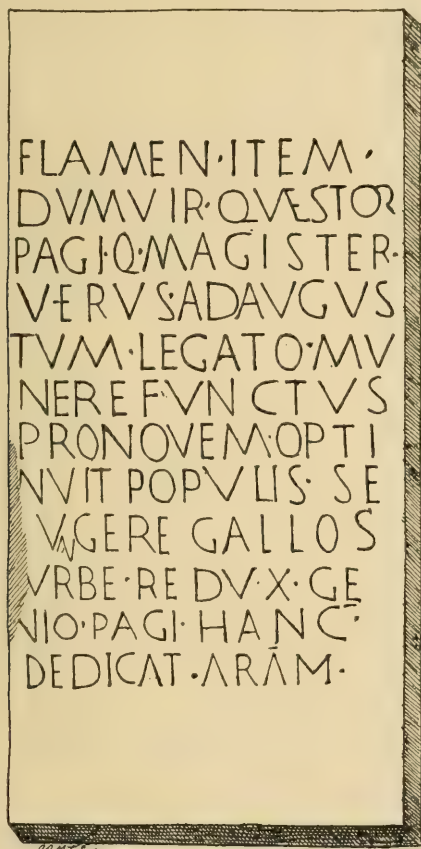 FLAMEN·ITEM·
DVMVIR·QVÆSTOR
PAGI·Q·MAGISTER·
VERVS·ADAVGVS
TVM·LEGATO·MV
NEREFVNCTVS
PRONOVEM·OPTI
NVIT POPVLIS· SE
IVNGERE GALLOS
VRBE·REDV·X·GE
NIO·PAGI·HANC·
DEDICAT·ARAM·